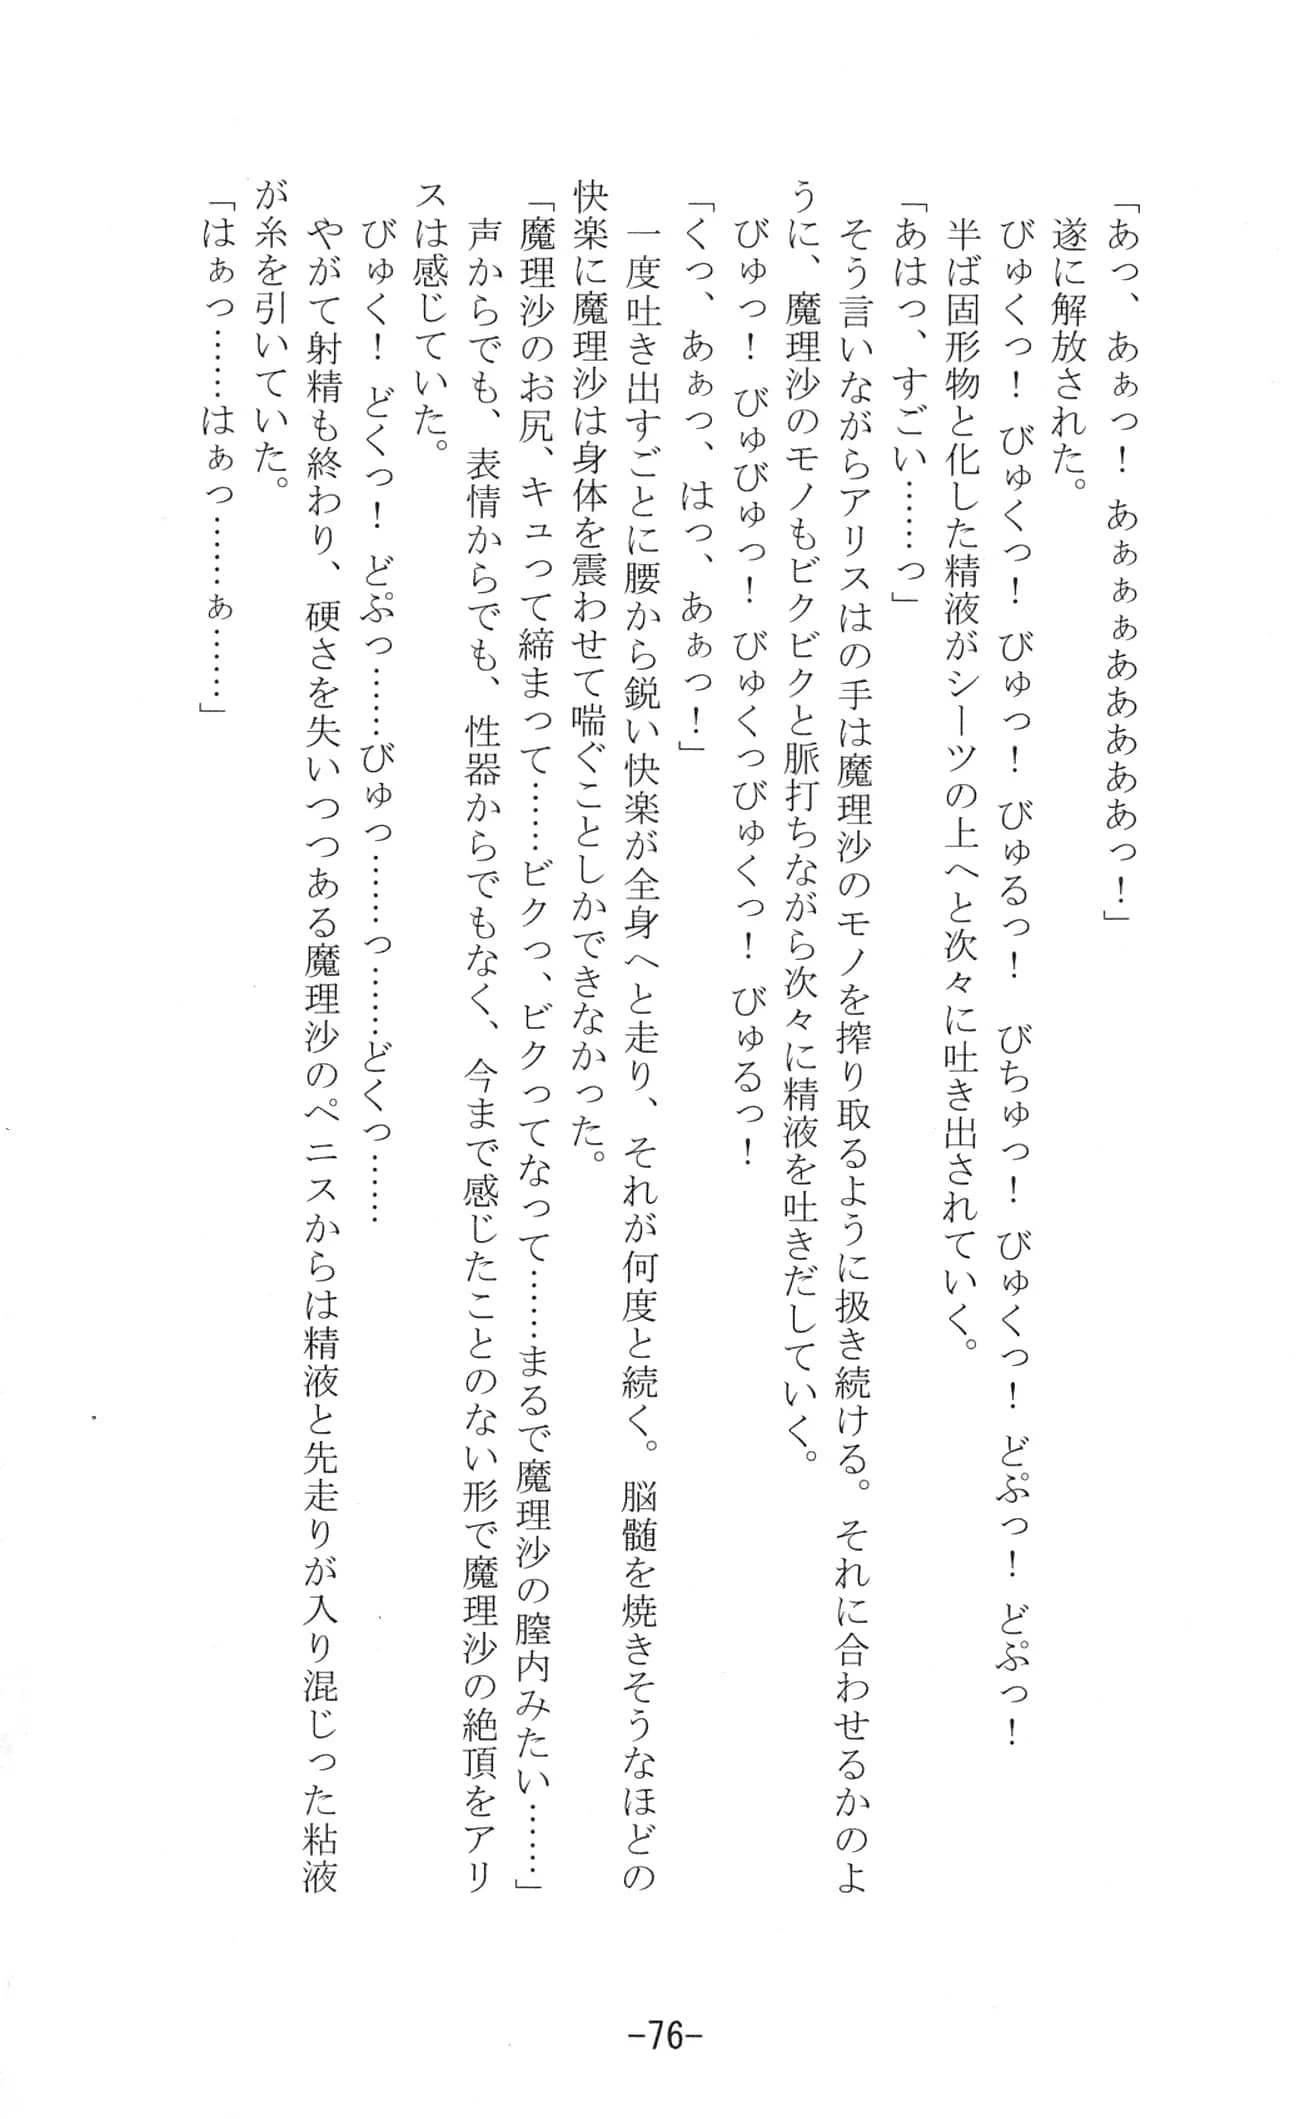 「あっ、あぁっ！ あぁぁぁああああああっ！」
遂に解放された。
びゅくっ！ びゅくっ！ びゅっ！ びゅるっ！ びちゅっ！ びゅくっ！ どぷっ！ どぷっ！
半ば固形物と化した精液がシーツの上へと次々に吐き出されていく。
「あはっ、すごい……っ」
そう言いながらアリスはの手は魔理沙のモノを搾り取るように扱き続ける。それに合わせるかのよ
うに、魔理沙のモノもビクビクと脈打ちながら次々に精液を吐きだしていく。
びゅっ！ びゅびゅっ！ びゅくっびゅくっ！ びゅるっ！
「くっ、あぁっ、はっ、あぁっ！」
一度吐き出すごとに腰から鋭い快楽が全身へと走り、それが何度と続く。脳髄を焼きそうなほどの
快楽に魔理沙は身体を震わせて喘ぐことしかできなかった。
「魔理沙のお尻、キュって締まって……ビクっ、ビクってなって……まるで魔理沙の膣内みたい……」
声からでも、表情からでも、性器からでもなく、今まで感じたことのない形で魔理沙の絶頂をアリ
スは感じていた。
びゅく！ どくっ！ どぷっ……びゅっ……っ……どくっ……
やがて射精も終わり、硬さを失いつつある魔理沙のペニスからは精液と先走りが入り混じった粘液
が糸を引いていた。
「はぁっ……はぁっ……ぁ……」
-76-